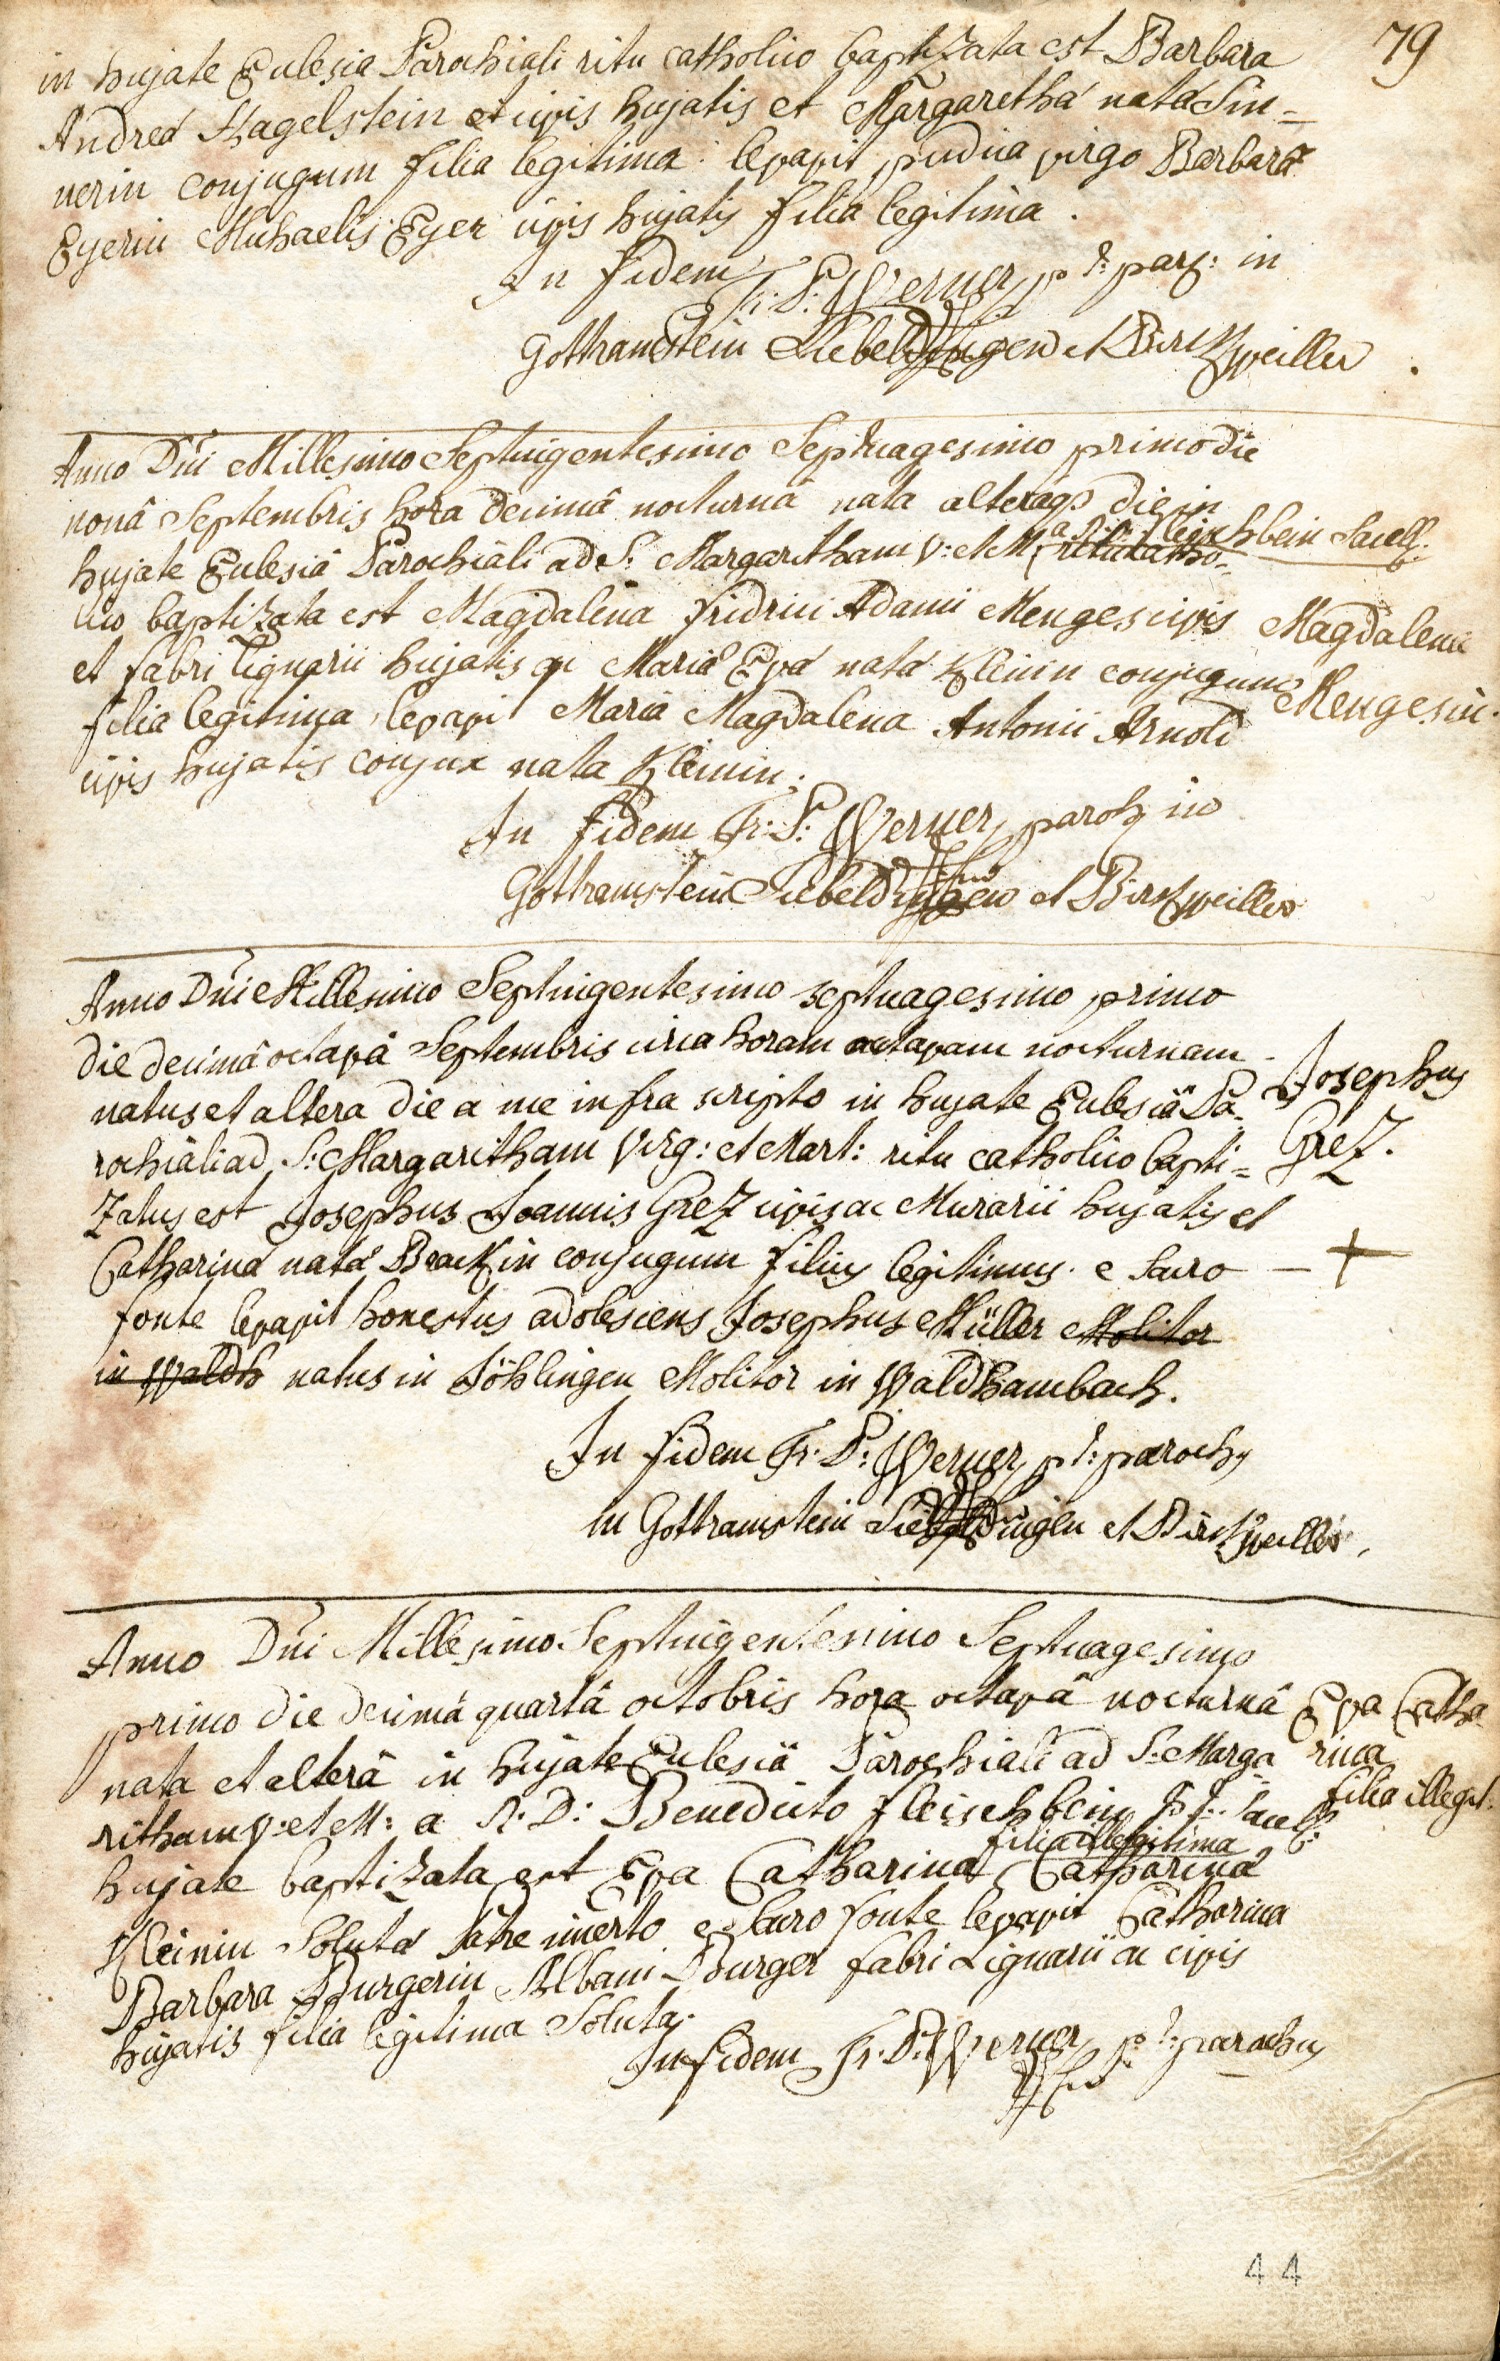 79
in hujate Eclesia Parochiali ritu catholico baptizata est Barbara
Andreâ Hagelstein et civis hujatis et Margarethâ natâ Sin=
nerin conjugum filia legitima. levavit pudica virgo Barbara
Eyerin Michaelis Eyer civis hujatis filia legitima.
In fidem Fr: P: Werner p t: par: in
Gottramstein Siebeldingen et Birckweiller.
Anno Dni Millesimo Septuigentesimo Septuagesimo primo die
nonâ Septembris hora decimâ nocturnâ nata alterâq die in
hujate Eclesiâ Parochiali ad S: Margaritham V: et M: ritu catho-
a Fleischbein Sacell:
lico baptizata est Magdalena fridrici Adami Menges civis
et fabri lignarii hujatis ac Mariâ Evâ natâ Kleinin conjugum
filia legitima, levavit Maria Magdalena Antonii Arnold
civis hujatis conjux nata Kleinin.
Magdalena
Mengesin.
In fidem Fr: P: Werner paroch in
Gottramstein Siebeldingen et Birckweiller
Anno Dni Millesimo Septuigentesimo septuagesimo primo
die decimâ octavâ Septembris circa horam octavam nocturnam
natus et altera die a me infra scripto in hujate Eclesiâ Pa-
rochiali ad S: Margaritham Virg: et Mart: ritu catholico bapti=
zatus est Josephus Joannis Grez civis ac Murarii hujatis et
Catharinâ natâ Brackin conjugum filius legitimus. e sacro
fonte levavit honestus adolescens Josephus Müller Molitor
in Waldh natus in Jöhlingen Molitor in Waldhambach.
Josephus
Grez.
– +
In fidem Fr. P: Werner p t: parochus
in Gottramstein Siebeldingen et Birckweiller.
Anno Dni Millesimo Septuigentesimo Septuagesimo
primo die decimâ quartâ octobris hora octavâ nocturnâ
nata et alterâ in hujate Eclesiâ Parochiali ad S: Marga
ritham V: et M: a R: D: Benedicto Fleischbein p t: Sacell:
filia illegitima
hujate baptizata est Eva Catharina Catharinâ
Kleinin Solutâ Patre incerto e sacro fonte levavit Catharina
Barbara Burgerin Albani Burger fabri Lignarii ac civis
hujatis filia legitima Soluta.
Eva Catha
rina
filia illegit.
In fidem Fr. P: Werner p t: parochus
44